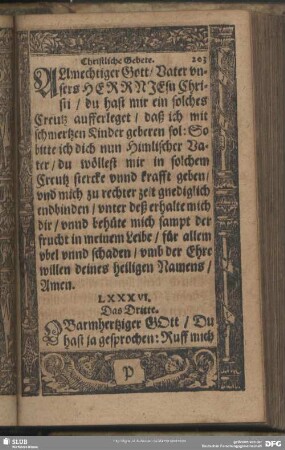 Christliche Gebete. 203
ALlmechtiger Gott / Vater vn-
sers HERRN JEsu Chri-
sti / du hast mir ein solches
Creutz aufferleget / daß ich mit
schmertzen Kinder geberen sol: So
bitte ich dich nun Himlischer Va-
ter / du wöllest mir in solchem
Creutz stercke vnnd krafft geben /
vnd mich zu rechter zeit gnediglich
endbinden / vnter deß erhalte mich
dir / vnnd behüte mich sampt der
frucht in meinem Leibe / für allem
vbel vnnd schaden / vmb der Ehre
willen deines heiligen Namens /
Amen.
LXXXVI.
Das Dritte.
O Barmhertziger GOtt / Du
hast ja gesprochen: Ruff mich
P
SLUB
DFG